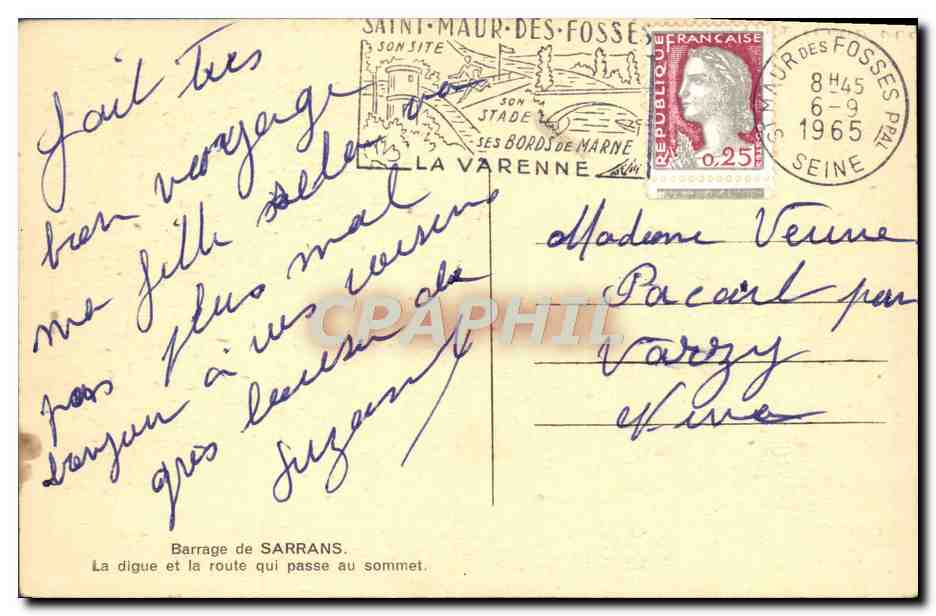 SAINT·MAUR·DES·FOSSES
SON SITE
SON
STADE
SES BORDS DE MARNE
LA VARENNE
REPUBLIQUE
FRANÇAISE
0,25
ST MAUR DES FOSSES PPAL
8H45
6-9
1965
SEINE
fait tres
bien voyage
ma fille va
pas plus mal
bonjour à vos voisins
Suzanne
Madame Veuve
Pacart par
Varzy
CPAPHIL
Barrage de SARRANS.
La digue et la route qui passe au sommet.